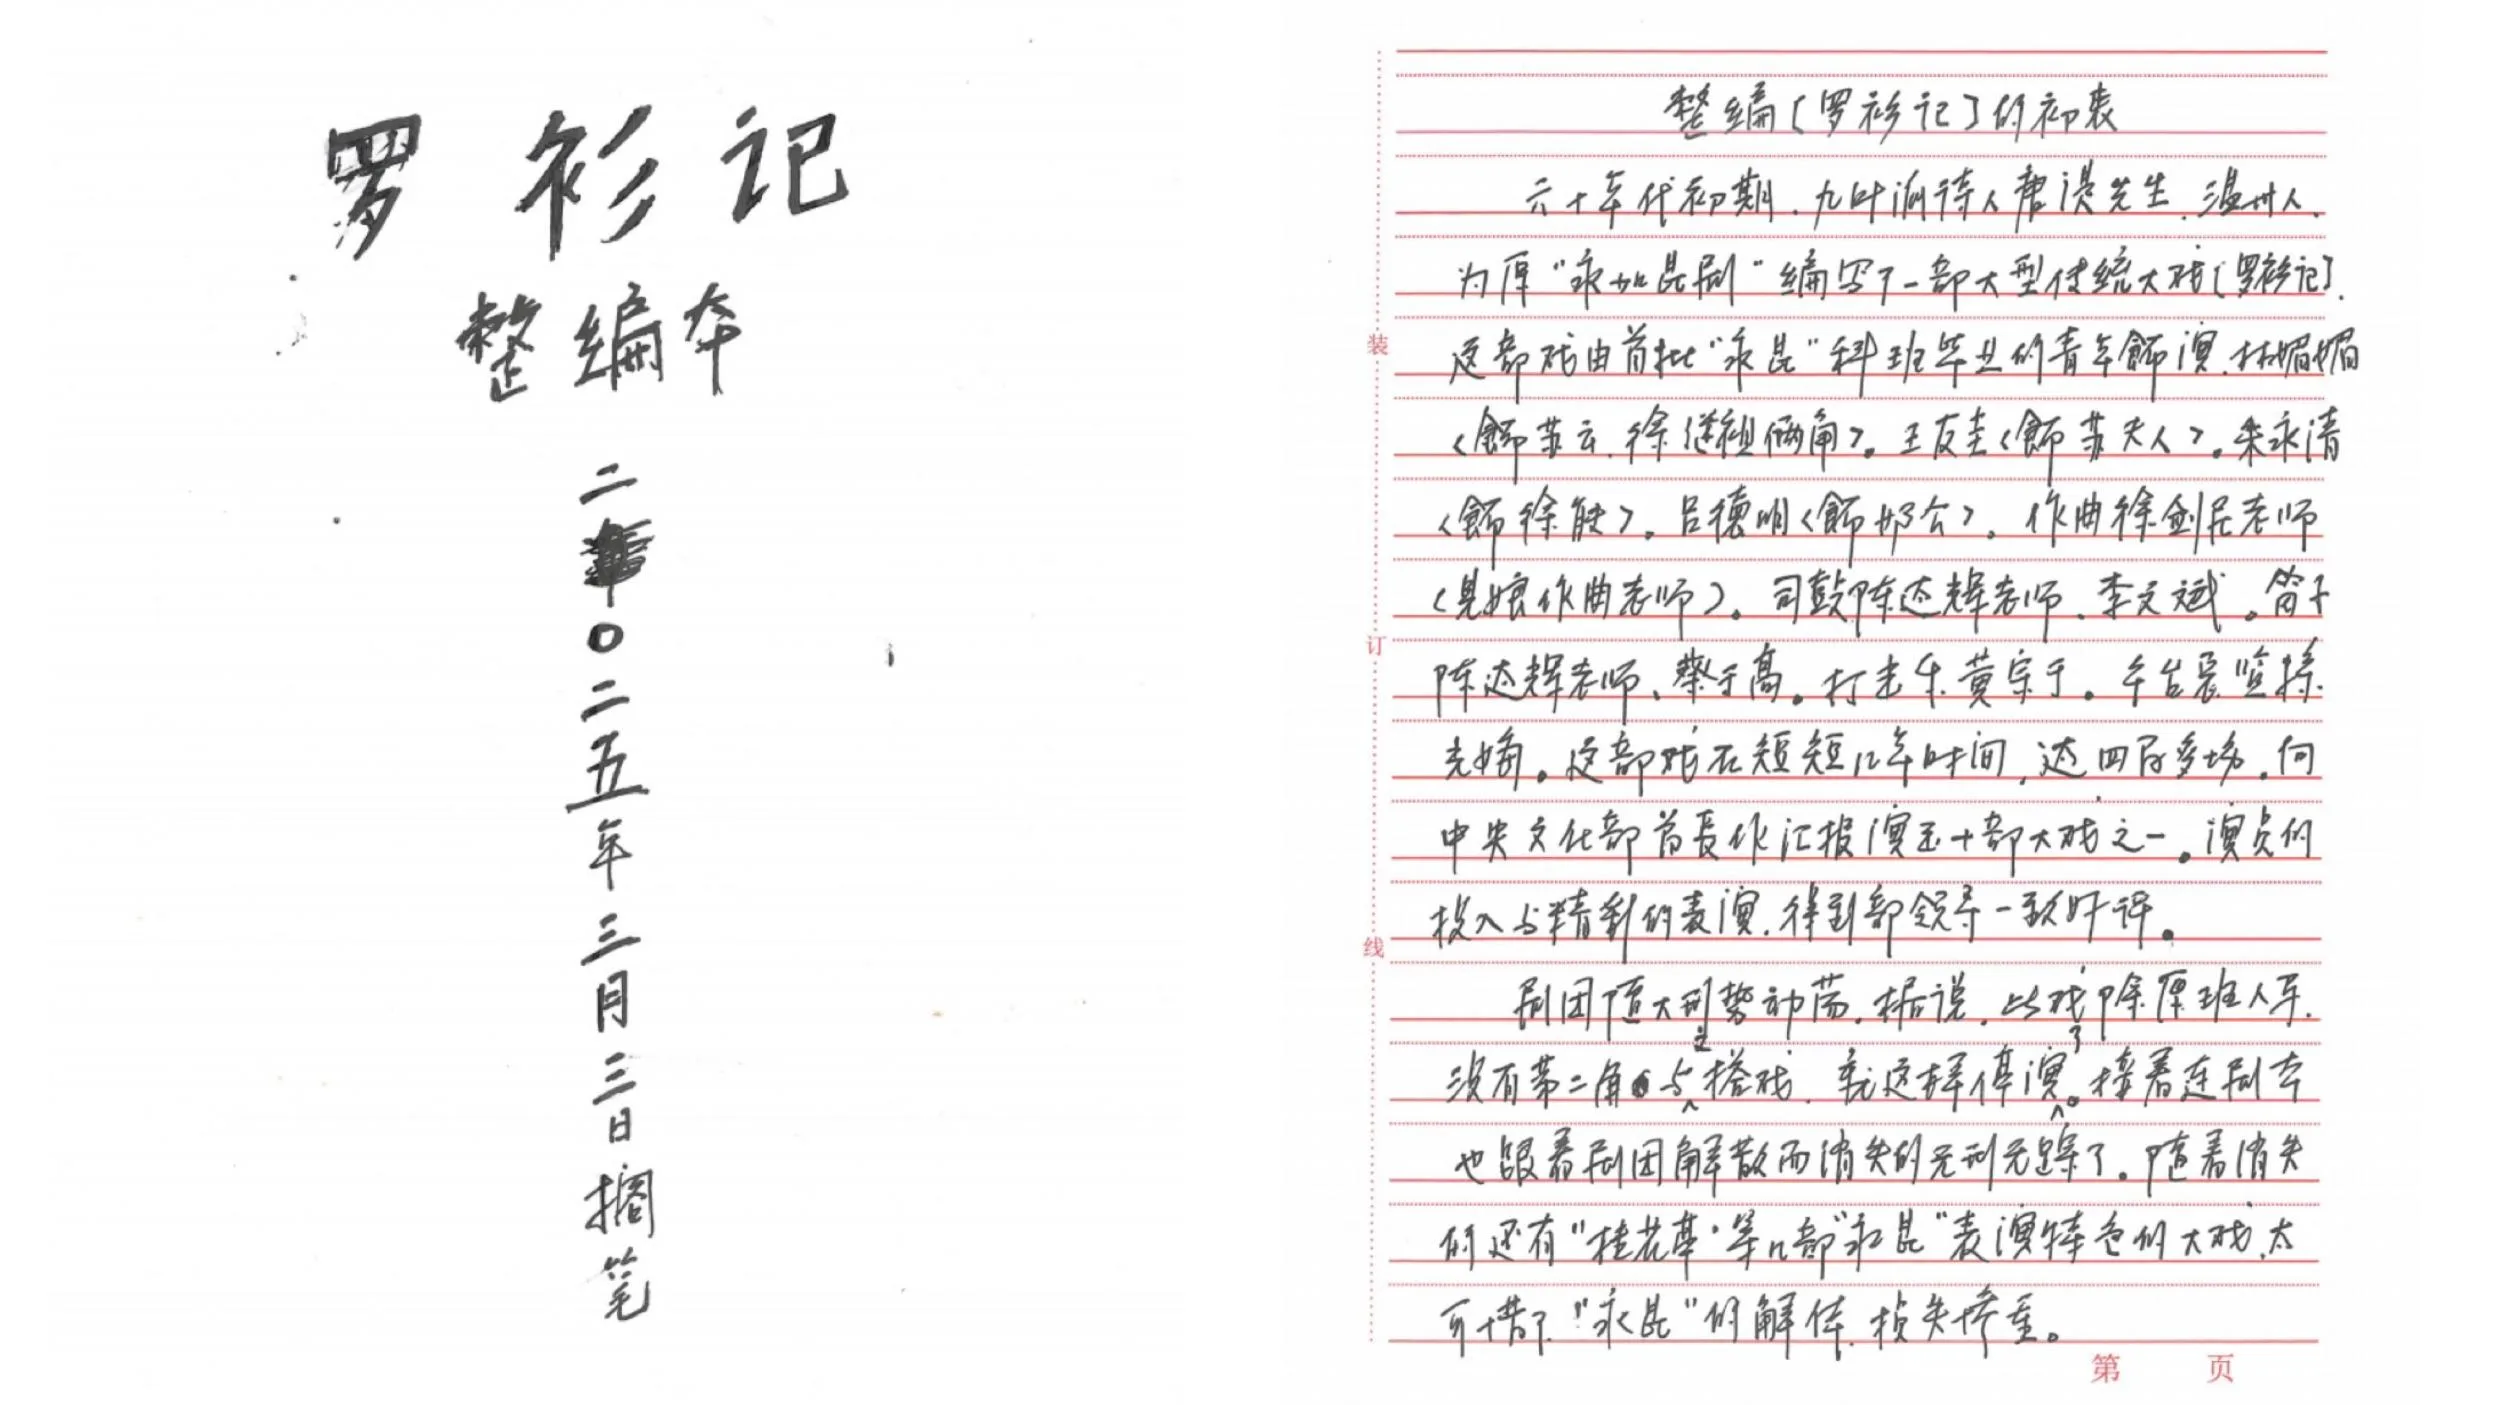 罗衫记
整编本
二〇二五年三月三日搁笔
整编［罗衫记］的初衷
六十年代初期，九叶派诗人唐湜先生，温州人，
为原“永加昆剧”编写了一部大型传统大戏［罗衫记］．
这部戏由首批“永昆”科班毕业的青年饰演，林媚媚
〈饰苏云，徐继祖俩角〉。王友圭〈饰苏夫人〉。朱永清
〈饰徐能〉。吕德明〈饰奶公〉。作曲徐剑民老师
（见娘作曲老师）。司鼓陈达辉老师、李文斌。笛子
陈达辉老师、蔡于高。打击乐黄宗于。午台
这部戏在短短几年时间，达四百多场，向
中央文化部首长作汇报演出十部大戏之一。演员的
投入与精彩的表演，得到部领导一致好评。
剧团随大型势动荡，据说，此戏除原班人马，
没有第二角与之搭戏，就这样停演了。接着连剧本
也跟着剧团解散而消失的无形无踪了。随着消失
的还有“桂花亭”等几部“永昆”表演特色的大戏，太
可惜了“永昆”的解体，损失惨重。
装
订
线
第 页